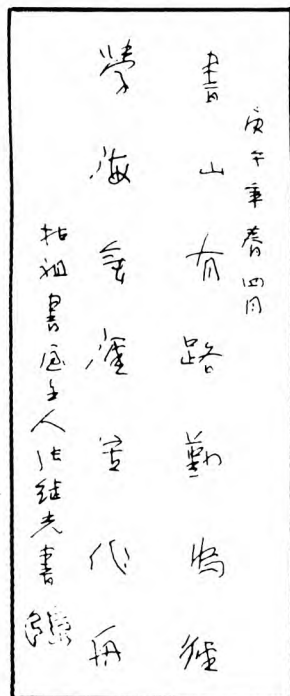 庚午年春四月
書山有路勤為徑
學海無涯寔代舟
拙祖書屋主人張繼光書